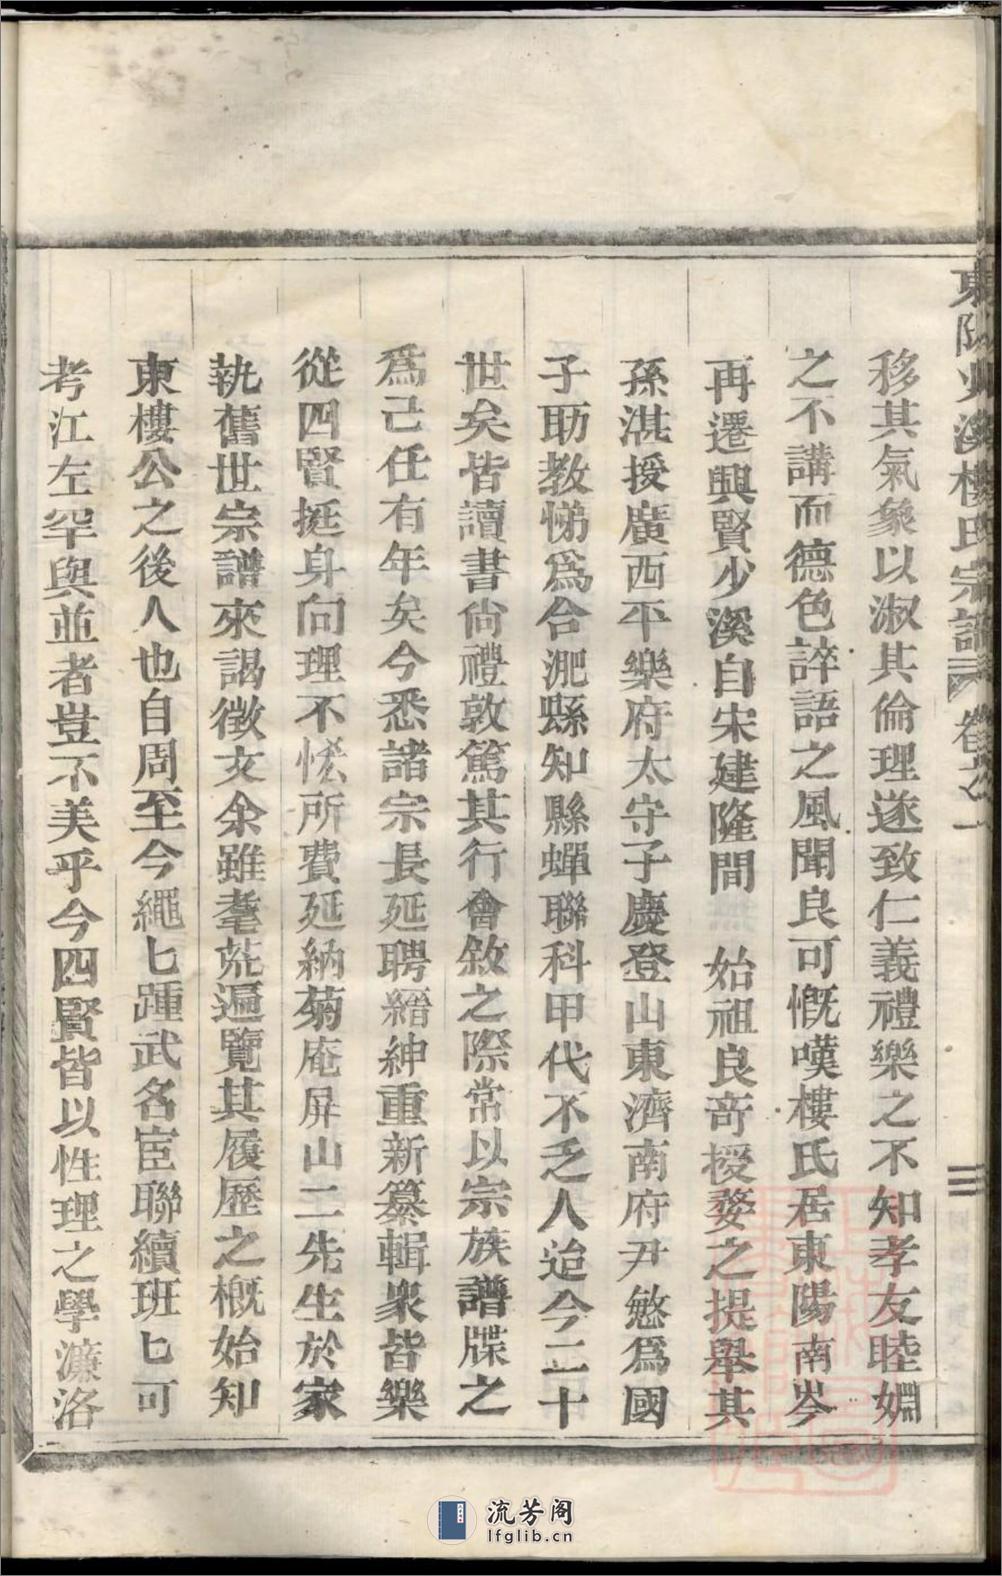 東陽少溪樓氏宗譜 卷之一
移其氣象以淑其倫理遂致仁義禮樂之不知孝友睦婣
之不講而德色誶語之風聞良可慨嘆樓氏居東陽南岑
再遷興賢少溪自宋建隆間 始祖良奇授婺之提舉其
孫湛授廣西平樂府太守子慶登山東濟南府尹慜爲國
子助教悌爲合淝縣知縣蟬聯科甲代不乏人迨今二十
世矣皆讀書尙禮敦篤其行會敘之際常以宗族譜牒之
爲己任有年矣今悉諸宗長延聘縉紳重新纂輯衆皆樂
從四賢挺身向理不恡所費延納菊庵屏山二先生於家
執舊世宗譜來謁徵文余雖耄荒遍覽其履歷之槪始知
東樓公之後人也自周至今繩匕踵武名宦聯續班匕可
考江左罕與並者豈不美乎今四賢皆以性理之學濂洛
三
流芳阁
lfglib.cn